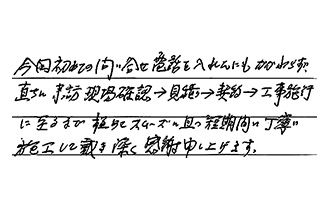 今回初めての問い合せ電話を入れたにもかかわらず、
直ちに来訪 現場確認→見積→契約→工事施行
に至るまで極めてスムーズに且つ短期間に丁寧に
施工して戴き深く感謝申し上げます。